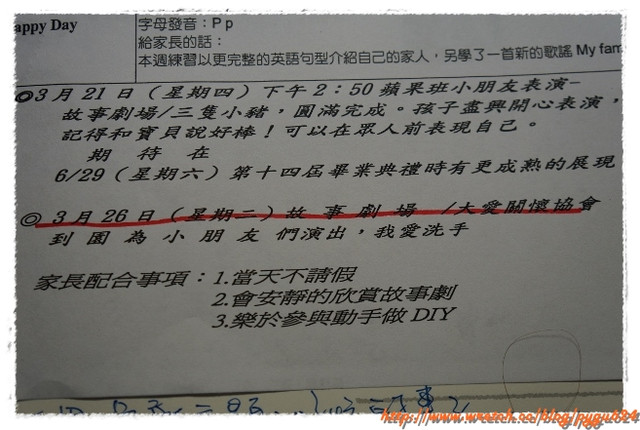 appy Day
字母發音：P p
給家長的話：
本週練習以更完整的英語句型介紹自己的家人，另學了一首新的歌謠 My fam
◎3月21日（星期四）下午2：50蘋果班小朋友表演-
故事劇場/三隻小豬，圓滿完成。孩子盡興開心表演，
記得和寶貝說好棒！可以在眾人前表現自己。
期待在
6/29（星期六）第十四屆畢業典禮時有更成熟的展現
◎3月26日（星期二）故事劇場 /大愛關懷協會
到園為小朋友們演出，我愛洗手
家長配合事項：1.當天不請假
2.會安靜的欣賞故事劇
3.樂於參與動手做 DIY